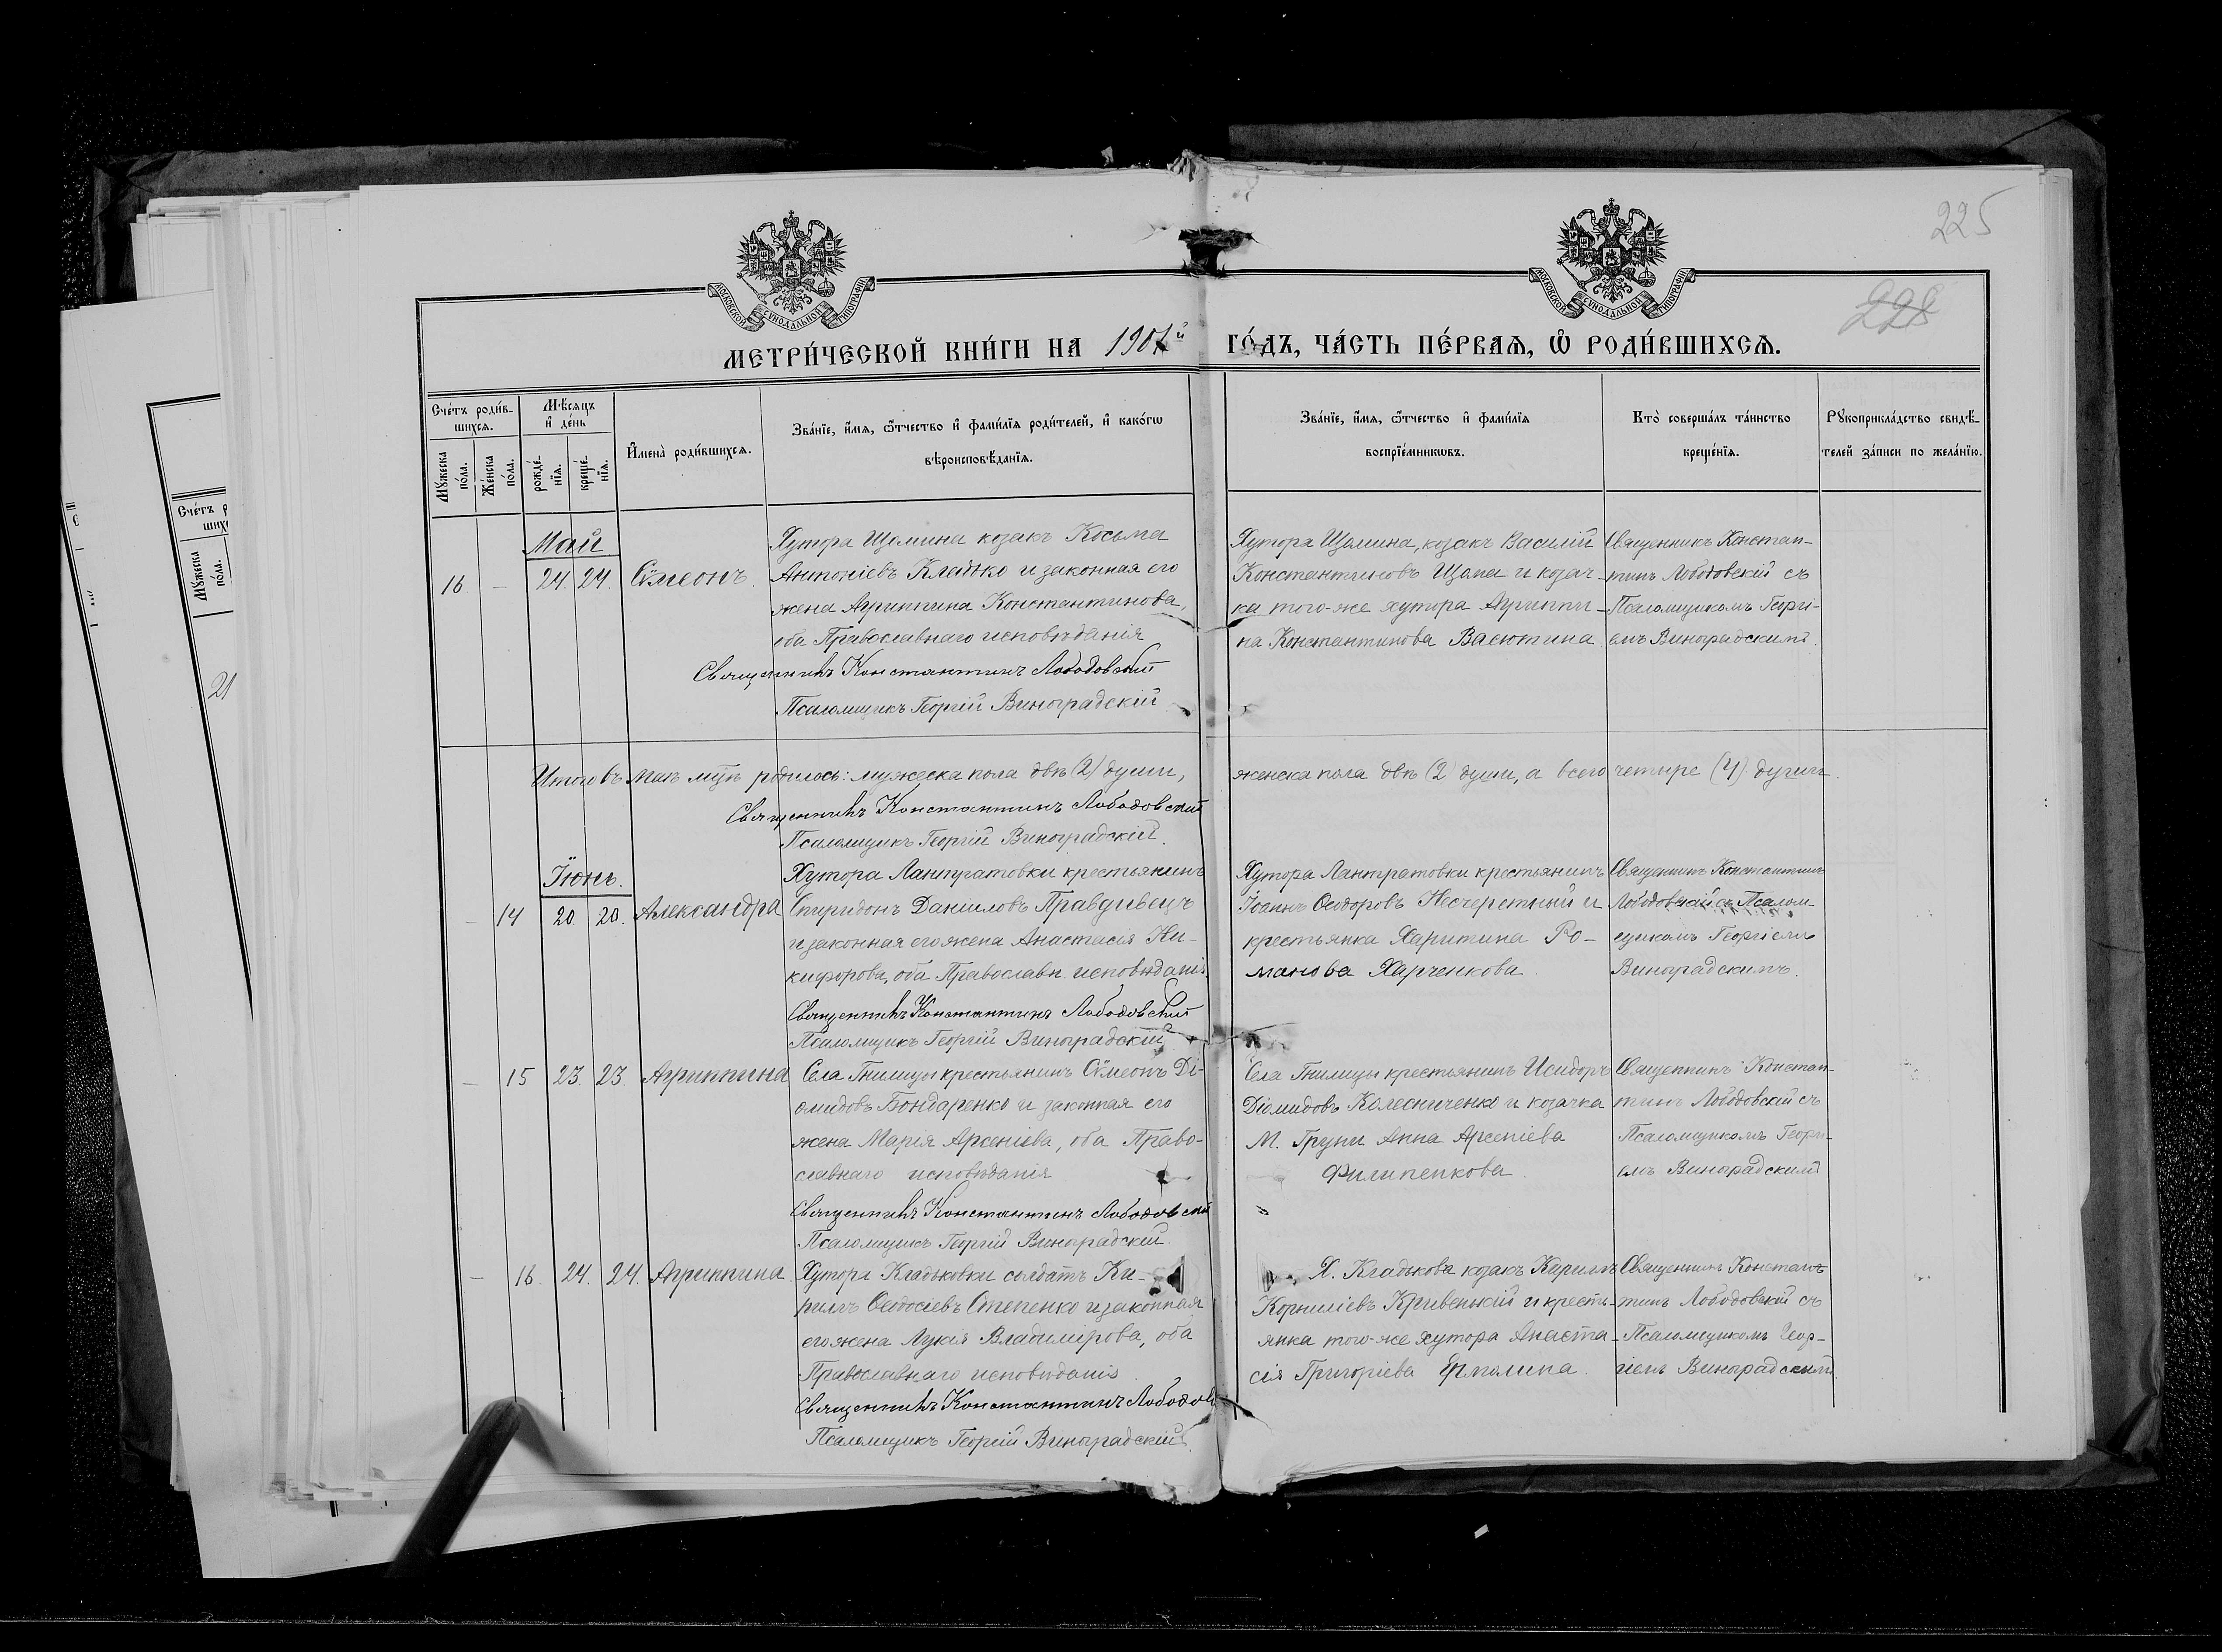 225
228
МОСКОВСКОЙ СУНОДАЛЬНОЙ ТИПОГРАФІИ
МОСКОВСКОЙ СУНОДАЛЬНОЙ ТИПОГРАФІИ
МЕТРИ́ЧЕСКОЙ КНИ́ГИ НА 1901й ГО́ДЪ, ЧА́СТЬ ПЕ́РВАѦ, Ѡ҆ РОДИ́ВШИХСѦ.
Сче́тъ роди́в-
шихсѧ.
Мꙋ́жеска по́ла.
Же́нска по́ла.
Мѣ́сѧцъ
и҆ де́нь
рожде́-нїѧ.
креще́-нїѧ.
И҆мена̀ роди́вшихсѧ.
Зва́нїе, и҆́мѧ, ѻ҆́тчество и҆ фами́лїѧ роди́телей, и҆ како́гѡ
вѣроисповѣ́данїѧ.
Зва́нїе, и҆́мѧ, ѻ҆́тчество и҆ фами́лїѧ
воспрїе́мникѡвъ.
Кто̀ соверша́лъ та́инство
креще́нїѧ.
Рꙋкоприкла́дство свидѣ́-
телей за́писи по жела́нїю.
Май
16 — 24. 24. Сѵмеонъ.
Хутора Щомина козакъ Косьма
Антоніевъ Клейко и законная его
жена Агриппина Константинова,
оба Православнаго исповѣданія
Священникъ Константинъ Лободовскій
Псаломщикъ Георгій Виноградскій
Хутора Щомина, козакъ Василій
Константиновъ Щома и козач-
ка того-же хутора Агриппи-
на Константинова Васютина.
Священникъ Констан-
тинъ Лободовскій съ
Псаломщикомъ Георгі-
емъ Виноградскимъ.
Итого въ маѣ мцѣ родилось: мужеска пола двѣ (2) души, женска пола двѣ (2) души, а всего четыре (4) души.
Священникъ Константинъ Лободовскій
Псаломщикъ Георгій Виноградскій.
Іюнь.
— 14 20. 20. Александра
Хутора Лантратовки крестьянинъ
Спиридонъ Даніиловъ Правдивецъ
и законная его жена Анастасія Ни-
кифорова, оба Православн. исповѣданія
Священникъ Константинъ Лободовскій
Псаломщикъ Георгій Виноградскій
Хутора Лантратовки крестьянинъ
Іоаннъ Ѳеодоровъ Нечеретный и
крестьянка Харитина Ро-
манова Харченкова
Священникъ Константинъ
Лободовскій съ Псалом-
щикомъ Георгіемъ
Виноградскимъ.
— 15 23. 23. Агриппина
Села Гнилицы крестьянинъ Сѵмеонъ Ді-
омидовъ Бондаренко и законная его
жена Марія Арсеніева, оба Право-
славнаго исповѣданія
Священникъ Константинъ Лободовскій
Псаломщикъ Георгій Виноградскій.
Села Гнилицы крестьянинъ Исидоръ
Діомидовъ Колесниченко и козачка
М. Груни Анна Арсеніева
Филипенкова.
Священникъ Констан-
тинъ Лободовскій съ
Псаломщикомъ Георгі-
емъ Виноградскимъ
— 16. 24. 24. Агриппина.
Хутора Кладьковки солдатъ Ки-
риллъ Ѳеодосіевъ Степенко и законная
его жена Лукія Владимірова, оба
Православнаго исповѣданія
Священникъ Константинъ Лободов
Псаломщикъ Георгій Виноградскій.
Х. Кладькова козакъ Кириллъ
Корниліевъ Кривенькій и кресть-
янка того-же хутора Анаста-
сія Григоріева Ермолина.
Священникъ Констан-
тинъ Лободовскій съ
Псаломщикомъ Геор-
гіемъ Виноградскимъ.
Сче́тъ р
ших
Мꙋ́жеска по́ла.
21